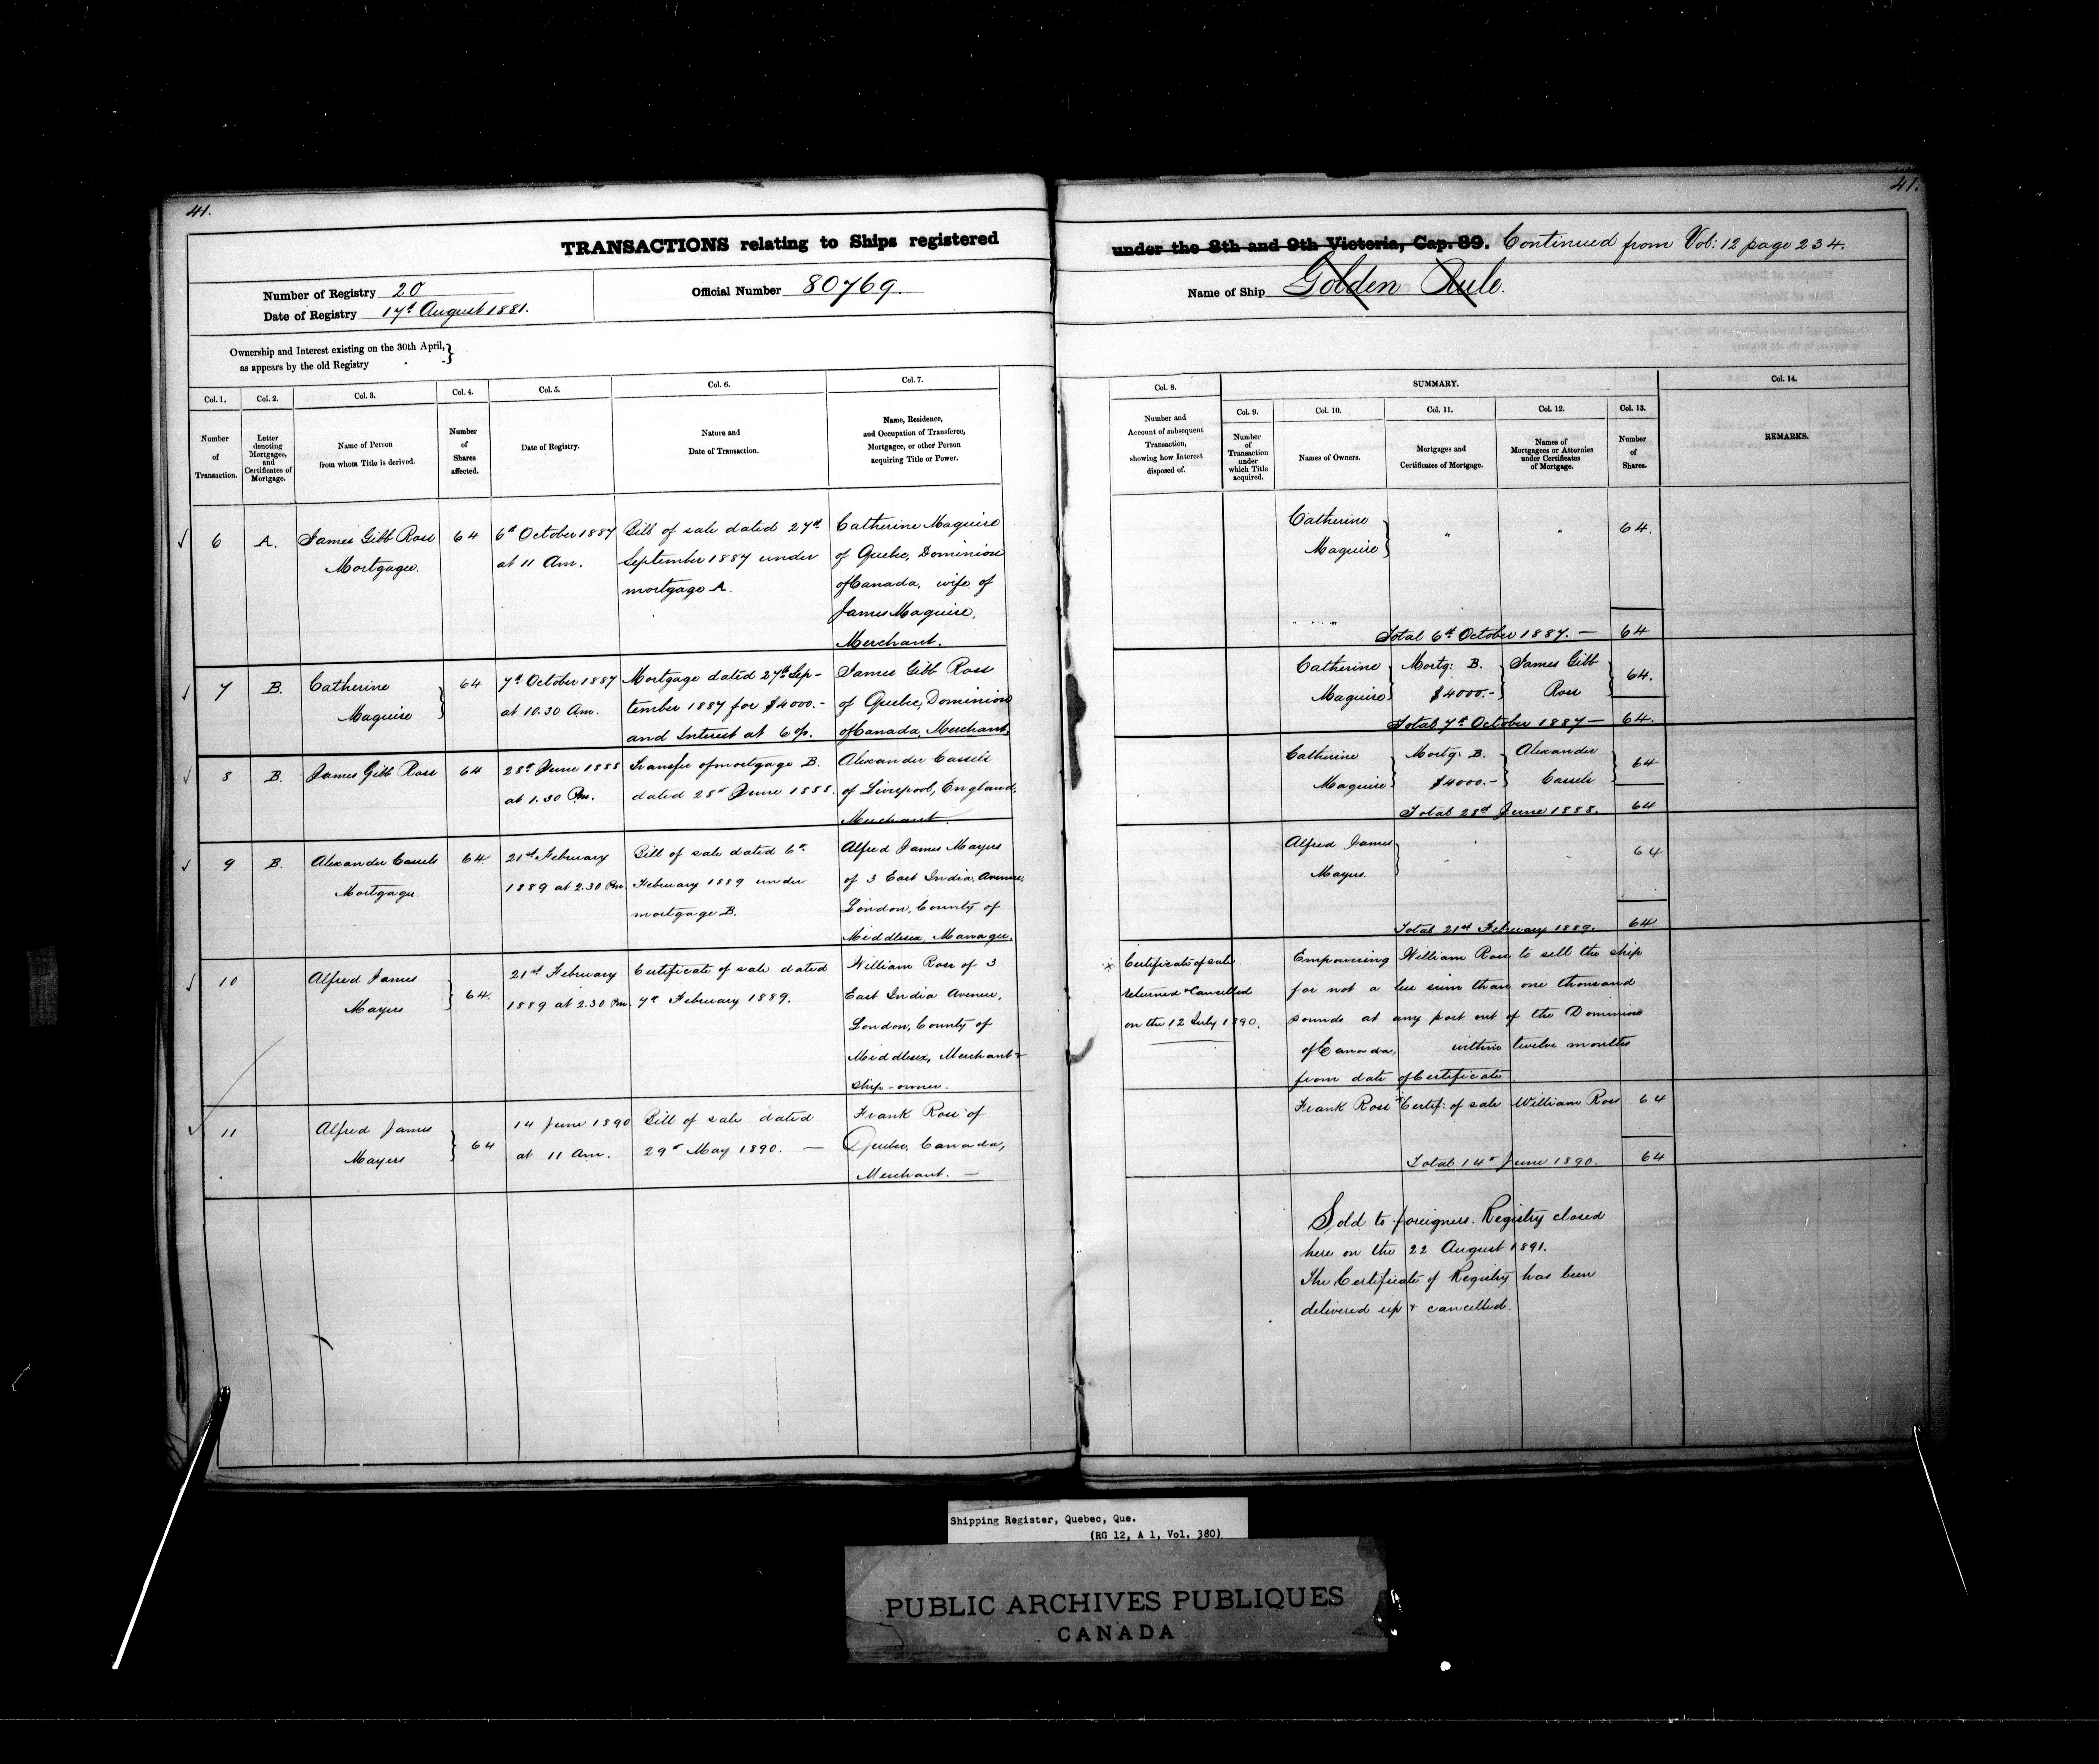 41.
41.
TRANSACTIONS relating to Ships registered
under the 8th and 9th Victoria, Cap. 89. Continued from Vol: 12 page 234.
Number of Registry 20
Date of Registry 17th August 1881.
Official Number 80769
Name of Ship Golden Rule.
Ownership and Interest existing on the 30th April,
as appears by the old Registry
Col. 1.
Number
of
Transaction.
Col. 2.
Letter
denoting
Mortgages,
and
Certificates of
Mortgage.
Col. 3.
Name of Person
from whom Title is derived.
Col. 4.
Number
of
Shares
affected.
Col. 5.
Date of Registry.
Col. 6.
Nature and
Date of Transaction.
Col. 7.
Name, Residence,
and Occupation of Transferee,
Mortgagee, or other Person
acquiring Title or Power.
Col. 8.
Number and
Account of subsequent
Transaction,
showing how Interest
disposed of.
SUMMARY.
Col. 9.
Number
of
Transaction
under
which Title
acquired.
Col. 10.
Names of Owners.
Col. 11.
Mortgages and
Certificates of Mortgage.
Col. 12.
Names of
Mortgagees or Attornies
under Certificates
of Mortgage.
Col. 13.
Number
of
Shares.
Col. 14.
REMARKS.
6
A.
James Gibb Ross
Mortgagee.
64
6th October 1887
at 11 Am.
Bill of sale dated 27th
September 1887 under
mortgage A.
Catherine Maguire
of Quebec, Dominion
of Canada, wife of
James Maguire,
Merchant.
Catherine
Maguire
64.
Total 6th October 1887. — 64
7
B.
Catherine
Maguire
64
7th October 1887
at 10.30 Am.
Mortgage dated 27th Sep-
tember 1887 for $4000.-
and Interest at 6 %.
James Gibb Ross
of Quebec, Dominion
of Canada, Merchant.
Catherine
Maguire
Mortg: B.
$4000.-
James Gibb
Ross
64.
Total 7th October 1887 — 64.
8
B.
James Gibb Ross
64
28th June 1888
at 1.30 Pm.
Transfer of mortgage B.
dated 28th June 1888.
Alexander Cassels
of Liverpool, England,
Merchant.
Catherine
Maguire
Mortg: B.
$4000.-
Alexander
Cassels
64
Total 28th June 1888. 64
9
B.
Alexander Cassels
Mortgagee.
64
21st February
1889 at 2.30 Pm.
Bill of sale dated 6th
February 1889 under
mortgage B.
Alfred James Mayers
of 3 East India Avenue,
London, County of
Middlesex, Manager.
Alfred James
Mayers.
64
Total 21st February 1889. 64
10
Alfred James
Mayers
64.
21st February
1889 at 2.30 Pm.
Certificate of sale dated
7th February 1889.
William Ross of 3
East India Avenue,
London, County of
Middlesex, Merchant &
ship-owner.
Certificate of sale
returned & Cancelled
on the 12 July 1890.
Empowering William Ross to sell the ship
for not a less sum than one thousand
pounds at any port out of the Dominion
of Canada, within twelve months
from date of Certificate.
11
Alfred James
Mayers
64
14 June 1890
at 11 Am.
Bill of sale dated
29th May 1890. —
Frank Ross of
Quebec, Canada,
Merchant. —
Frank Ross
Certif: of sale
William Ross
64
Total 14th June 1890. 64
Sold to foreigners. Registry closed
here on the 22 August 1891.
The Certificate of Registry has been
delivered up & cancelled.
Shipping Register, Quebec, Que.
(RG 12, A 1, Vol. 380)
PUBLIC ARCHIVES PUBLIQUES
CANADA